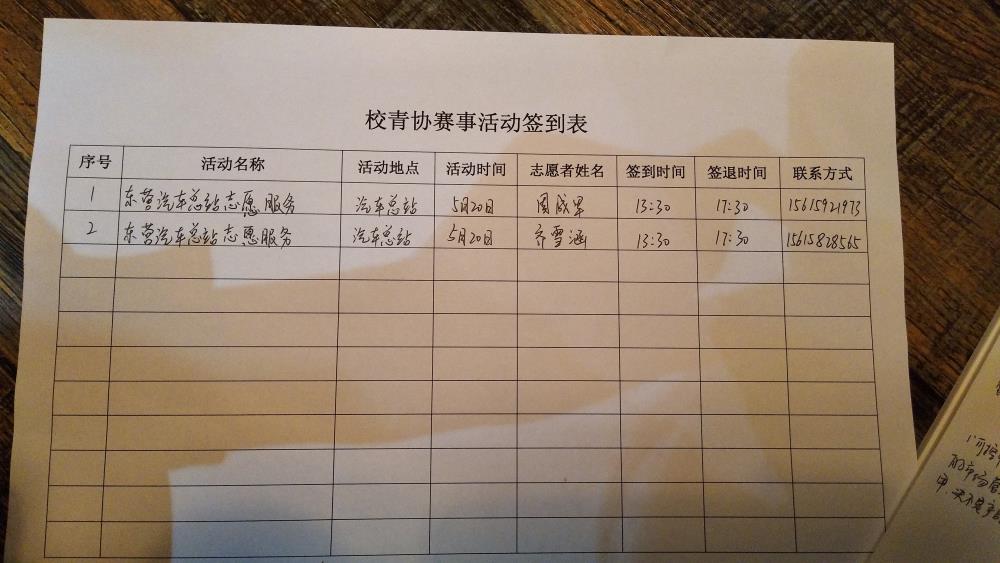 校青协赛事活动签到表
序号 活动名称 活动地点 活动时间 志愿者姓名 签到时间 签退时间 联系方式
1 东营汽车总站志愿服务 汽车总站 5月20日 周成果 13:30 17:30 15615921973
2 东营汽车总站志愿服务 汽车总站 5月20日 齐雪涵 13:30 17:30 15615828565
的市场